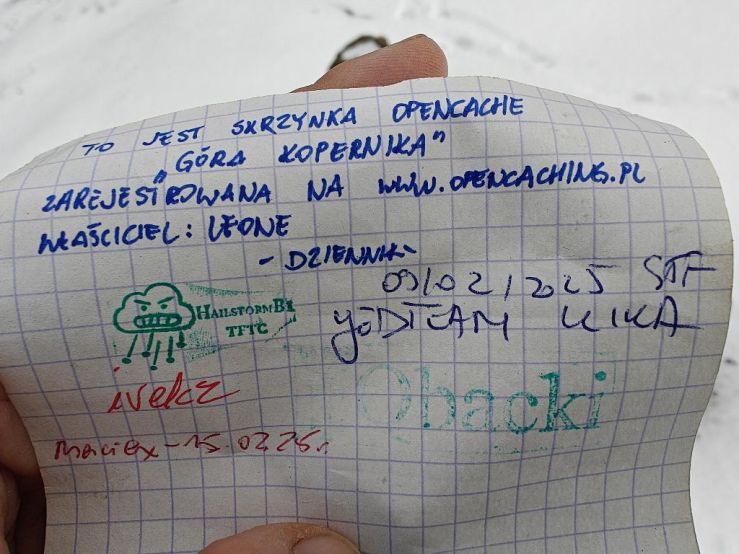 TO JEST SKRZYNKA OPENCACHE
"GÓRA KOPERNIKA"
ZAREJESTROWANA NA WWW.OPENCACHING.PL
WŁAŚCICIEL: LEONE
- DZIENNIK-
09/02/2025 STF
HAILSTORMB1
TFTC
YEDTEAM KIKA
ivekz
Qbacki
Maciex - 15.02.25r.